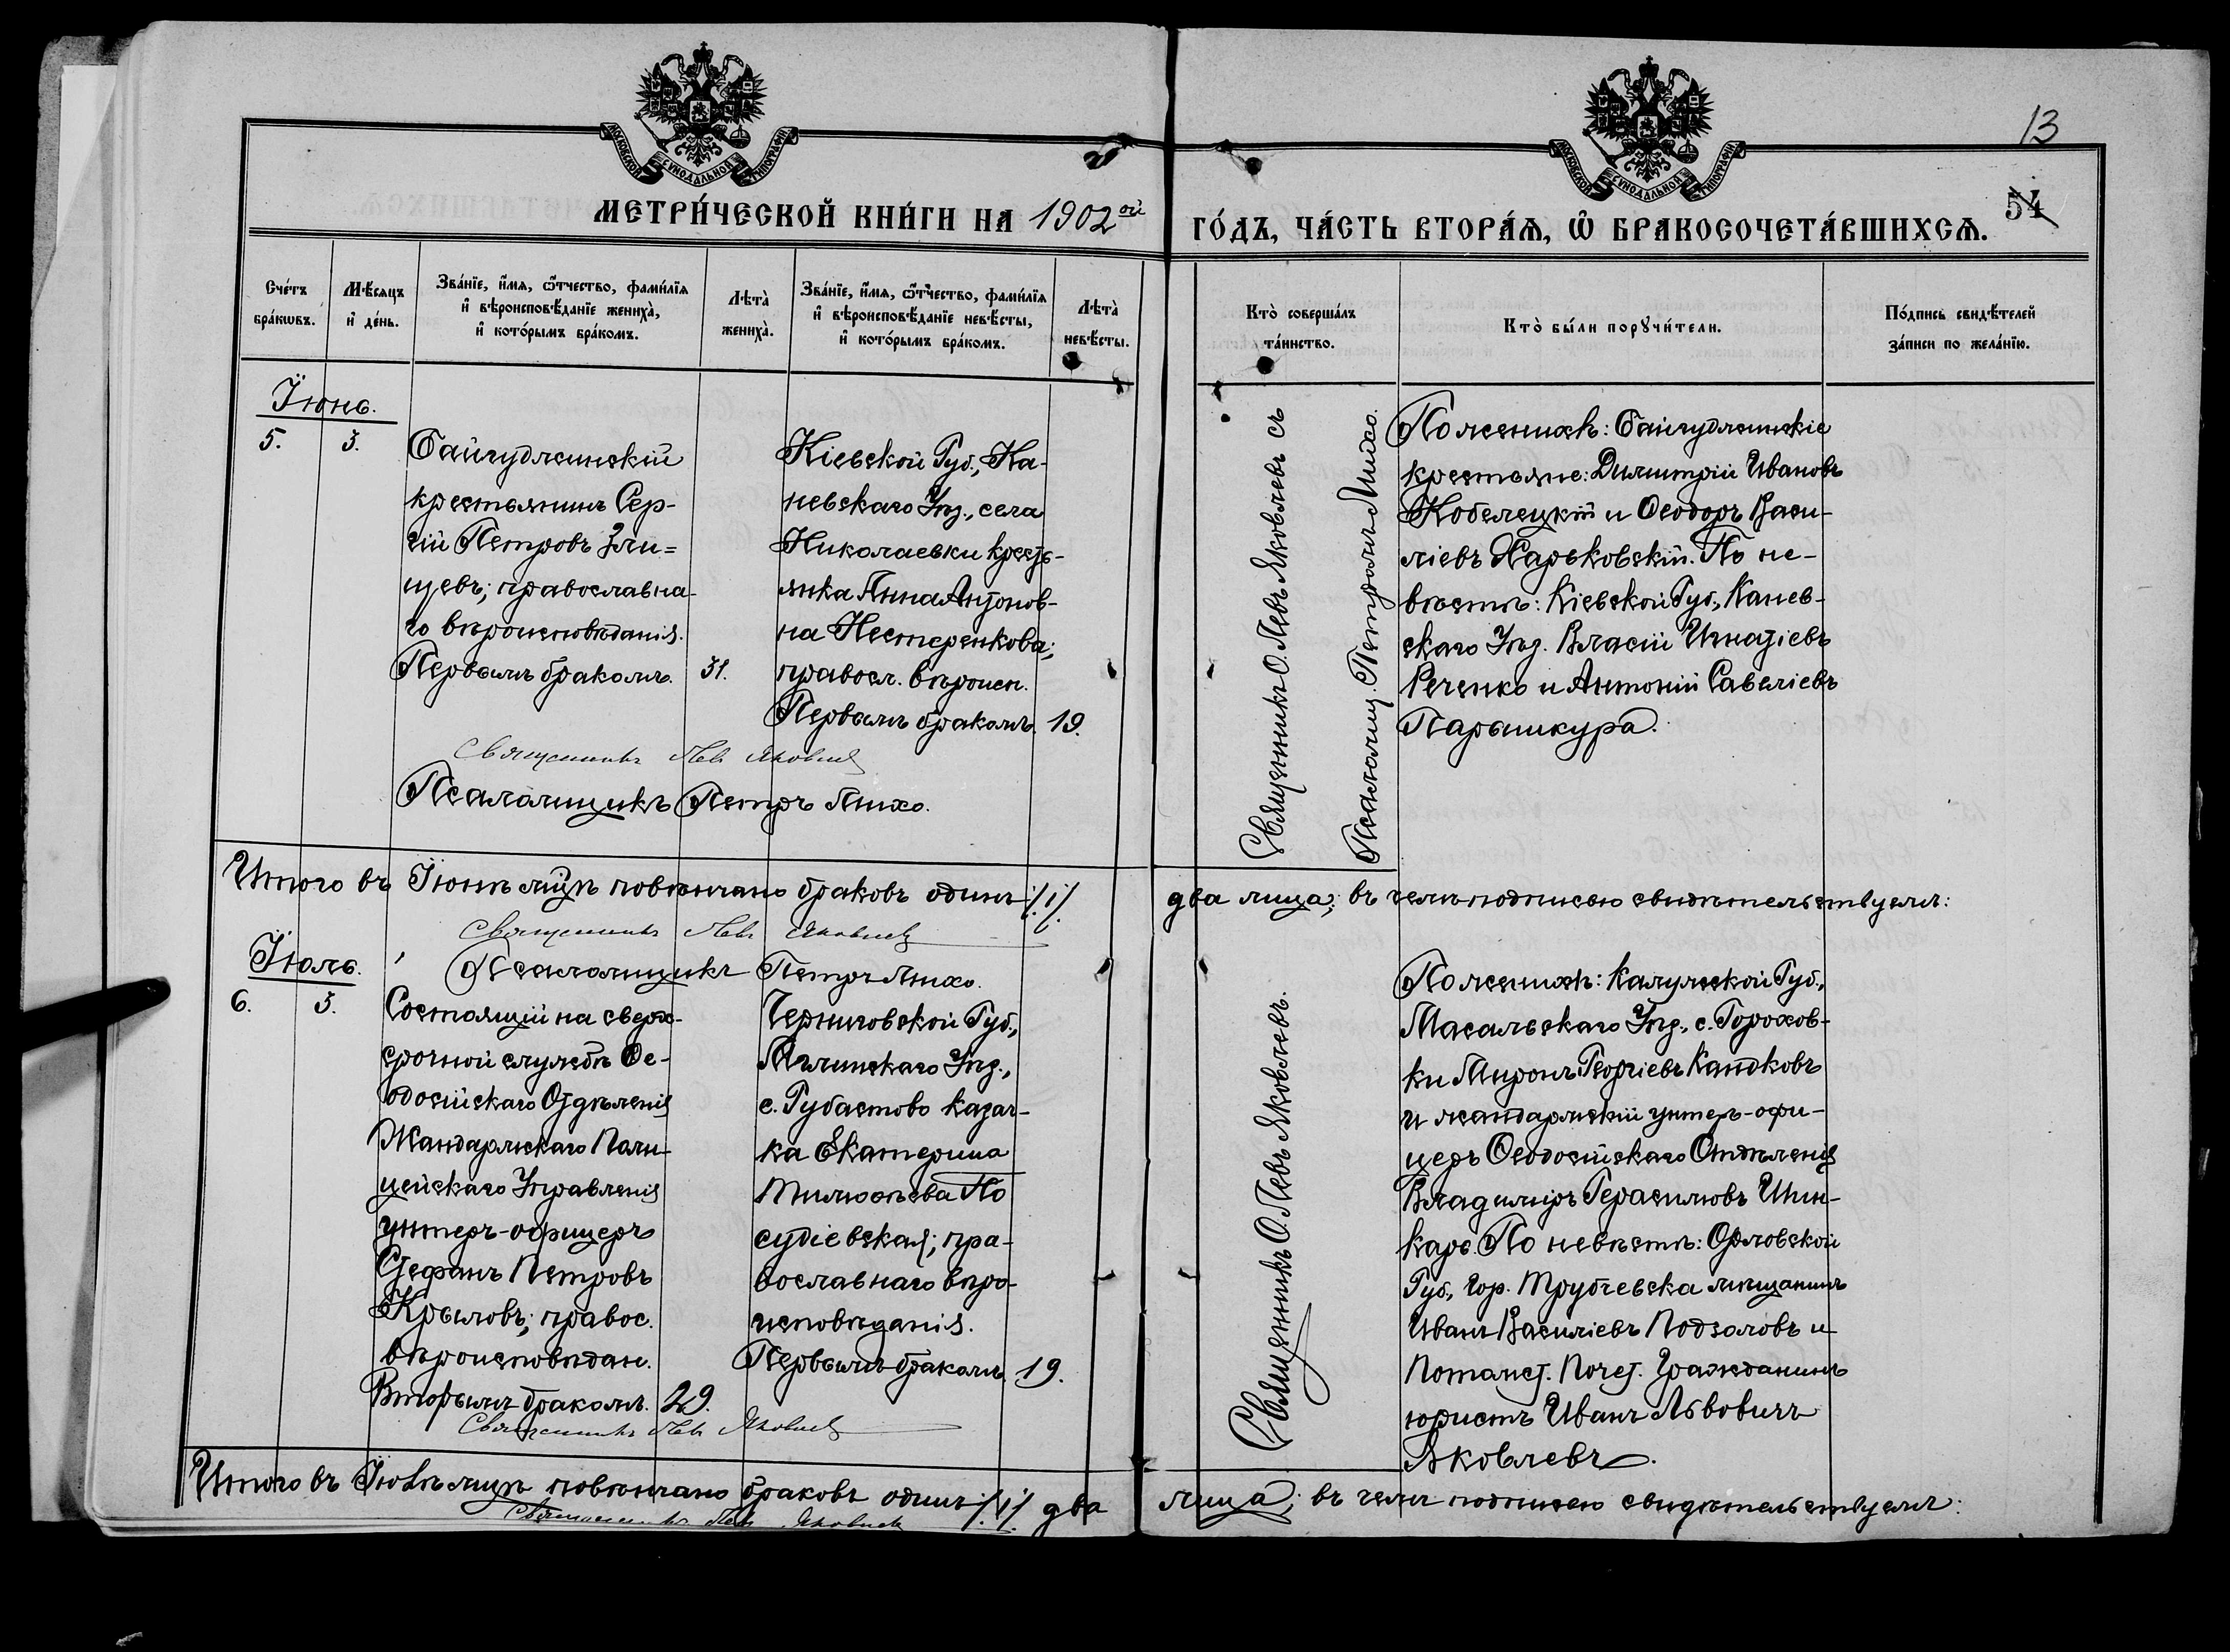 13
54
МОСКОВСКОЙ СѴНОДАЛЬНОЙ ТИПОГРАФІИ
МОСКОВСКОЙ СѴНОДАЛЬНОЙ ТИПОГРАФІИ
МЕТРИ́ЧЕСКОЙ КНИ́ГИ НА 1902ой ГО́ДЪ, ЧА́СТЬ ВТОРА́Ѧ, Ѽ БРАКОСОЧЕТА́ВШИХСѦ.
Сче́тъ
бра́кѡвъ.
Мѣ́сяцъ
и҆ де́нь.
Зва́нїе, и҆́мя, ѻ҆́тчество, фами́лїя
и҆ вѣроисповѣ́данїе жениха̀,
и҆ кото́рымъ бра́комъ.
Лѣта̀
жениха̀.
Зва́нїе, и҆́мя, ѻ҆́тчество, фами́лїя
и҆ вѣроисповѣ́данїе невѣ́сты,
и҆ кото́рымъ бра́комъ.
Лѣта̀
невѣ́сты.
Кто̀ соверша́лъ
та́инство.
Кто̀ бы́ли порꙋчи́тели.
По́дпись свидѣ́телей
за́писи по жела́нїю.
Іюнь.
5.
3.
Байгуджинскій
крестьянинъ Сер-
гій Петровъ Зли=
щевъ; православна-
го вѣроисповѣданія.
Первымъ бракомъ.
31.
Кіевской Губ., Ка-
невскаго Уѣз., села
Николаевки кресть-
янка Анна Антонов-
на Нестеренкова;
правосл. вѣроисп.
Первымъ бракомъ.
19.
Священникъ О. Левъ Яковлевъ съ
Псаломщ. Петромъ Лихо.
По женихѣ: Байгуджинскіе
крестьяне: Димитрій Ивановъ
Кобелецкій и Ѳеодоръ Васи-
ліевъ Харьковскій. По не-
вѣстѣ: Кіевской Губ., Канев-
скаго Уѣз. Власій Игнатіевъ
Реченко и Антоній Савеліевъ
Парашкура.
Священникъ Левъ Яковлев
Псаломщикъ Петръ Лихо.
Итого въ Іюнѣ мцѣ повѣнчано браковъ одинъ /1/ два лица; въ чемъ подписью свидѣтельствуемъ:
Священникъ Левъ Яковлев
Псаломщикъ Петръ Лихо.
Іюль.
6.
3.
Состоящій на сверх-
срочной службѣ Ѳе-
одосійскаго Отдѣленія
Жандармскаго Поли-
цейскаго Управленія
унтеръ-офицеръ
Стефанъ Петровъ
Крыловъ; правос.
вѣроисповѣдан.
Вторымъ бракомъ.
29.
Черниговской Губ.,
Мглинскаго Уѣз.,
с. Губастово казач-
ка Екатерина
Тимоѳѣева По
судіевская; пра-
вославнаго вѣро-
исповѣданія.
Первымъ бракомъ.
19.
Священникъ О. Левъ Яковлевъ.
По женихѣ: Калужской Губ.,
Масальскаго Уѣз., с. Горохов-
ки Миронъ Георгіевъ Кандковъ
и жандармскій унтеръ-офи-
церъ Ѳеодосійскаго Отдѣленія
Владиміръ Герасимовъ Шин-
карь. По невѣстѣ: Орловской
Губ., гор. Трубчевска мѣщанинъ
Иванъ Василіевъ Подзоловъ и
Потомст. Почет. Гражданинъ
юристъ Иванъ Львовичъ
Яковлевъ.
Священникъ Левъ Яковлев
Итого въ Іюлѣ мцѣ повѣнчано браковъ одинъ /1/ два лица; въ чемъ подписью свидѣтельствуемъ:
Священникъ Левъ Яковлев